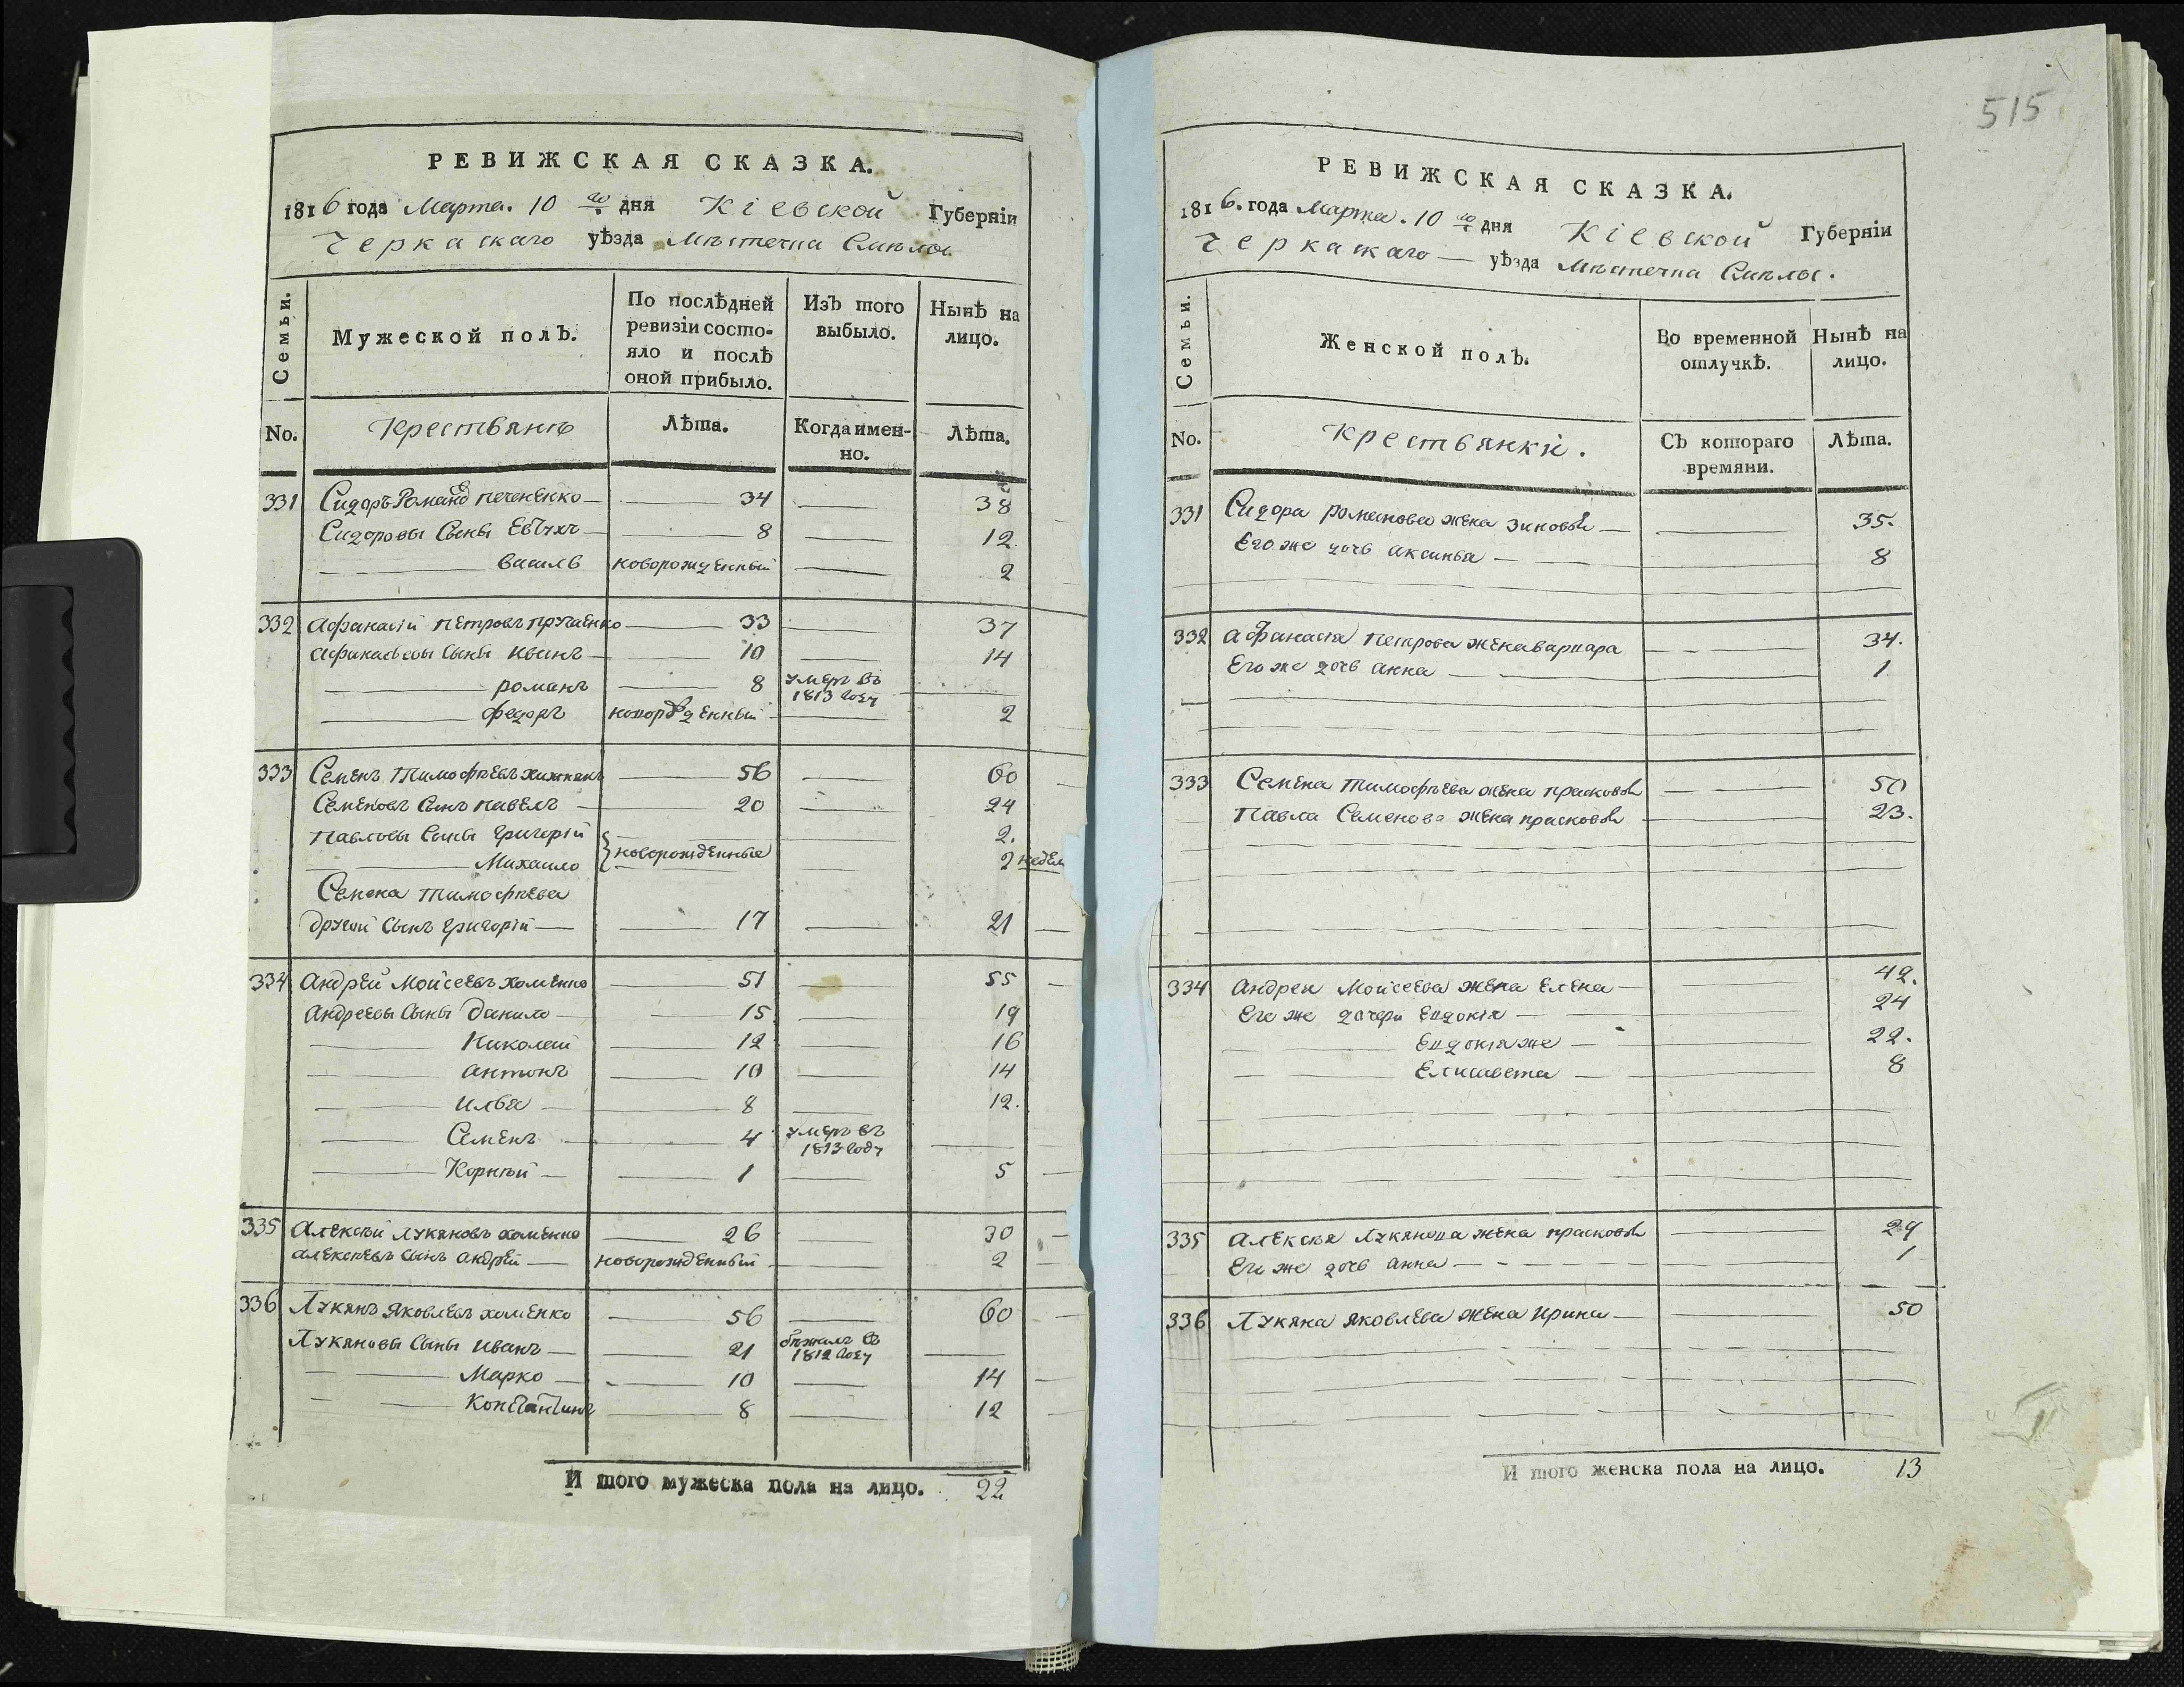 515
РЕВИЖСКАЯ СКАЗКА.
1816 года Марта. 10 го дня Кіевской Губерніи
Черкаскаго уѣзда Мѣстечка Смѣлы.
Семьи. Мужеской полъ. По послѣдней ревизіи состояло и послѣ оной прибыло. Изъ того выбыло. Нынѣ на лицо.
No. Крествянъ Лѣта. Когда именно. Лѣта.
331 Сидоръ Романов Печененко 34 38
Сидоровы Сыны Евтухъ 8 12
василь новорожденный 2
332 Афанасій Петровъ 33 37
Афанасьевы Сыны иванъ 10 14
романъ 8 умеръ въ 1813 году
федоръ новорожденный 2
333 Семенъ Тимофѣевъ 56 60
Семеновъ Сынъ павелъ 20 24
Павловы Сыны Григорій 2.
Михайло новорожденные 2 недел
Семена Тимофѣева
другой Сынъ Григорій 17 21
334 Андрей Моисеевъ Хоменко 51 55
Андреевы Сыны Данило 15 19
Николай 12 16
антонъ 10 14
илья 8 12.
Семенъ 4 умеръ въ 1813 году
Корнѣй 1 5
335 Алексѣй Лукяновъ хоменко 26 30
алексѣевъ сынъ андрей новорожденный 2
336 Лукянъ Яковлевъ хоменко 56 60
Лукяновы Сыны иванъ 21 бѣжалъ въ 1812 году
Марко 10 14
Константинъ 8 12
И того мужеска пола на лицо. 22
РЕВИЖСКАЯ СКАЗКА.
1816. года Марта. 10 го дня Кіевской Губерніи
Черкаскаго уѣзда Мѣстечка Смѣлы.
Семьи. Женской полъ. Во временной отлучкѣ. Нынѣ на лицо.
No. крествянки. Съ котораго времяни. Лѣта.
331 Сидора романова жена зиновья 35.
Его же дочь аксинья 8
332 афанасія Петрова жена варвара 34.
Его же дочь анна 1
333 Семена Тимофѣева жена прасковья 50
Павла Семенова жена прасковья 23.
334 Андрея Моисеева жена Елена 42.
Его же дочери Евдокія 24
Евдокія же 22.
Елисавета 8
335 Алексѣя Лукянова жена прасковья 29
Его же дочь анна 1
336 Лукяна яковлева жена ирина 50
И того женска пола на лицо. 13